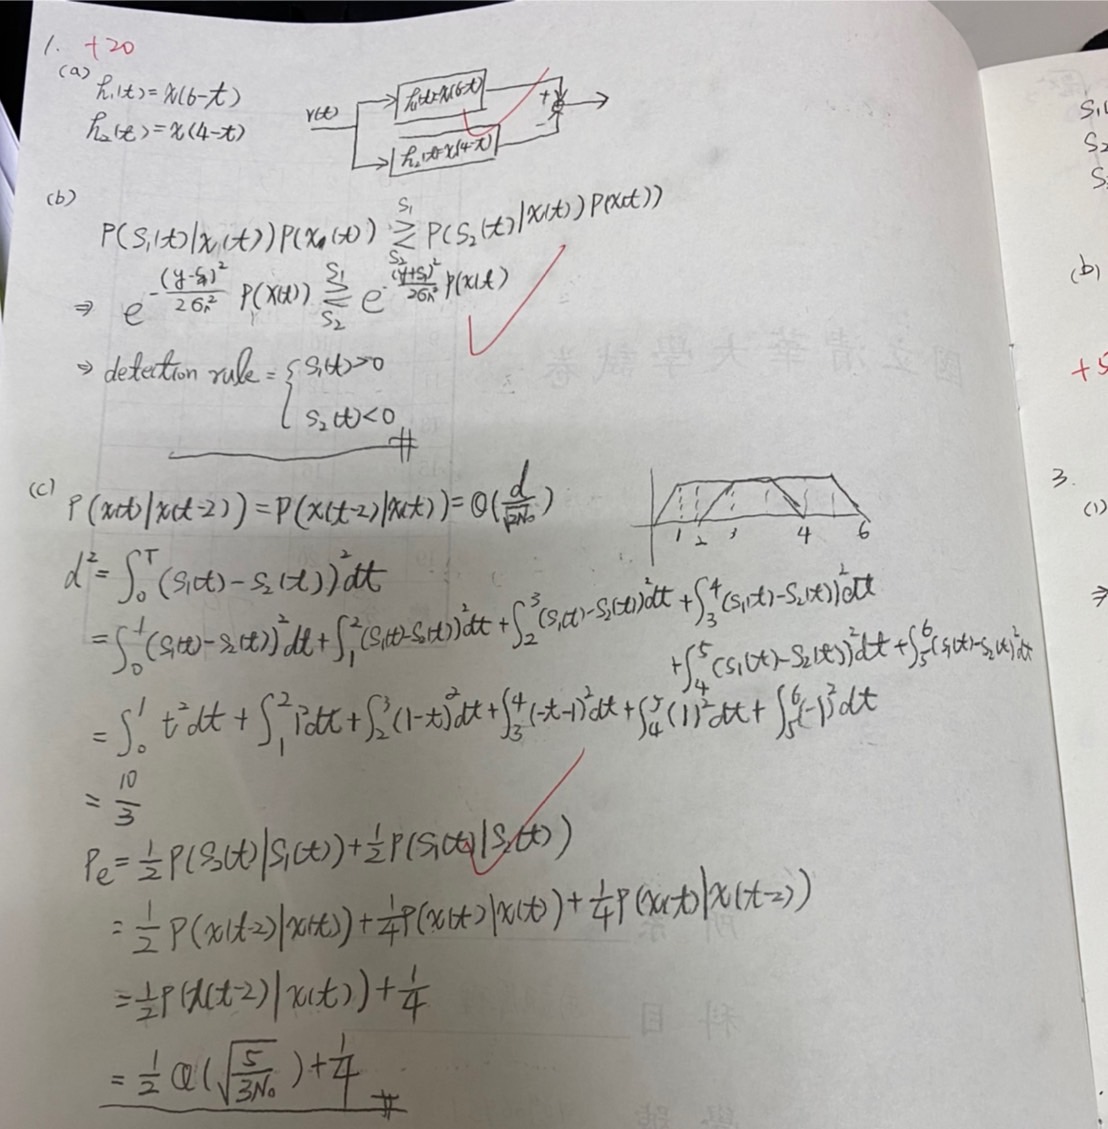 1. +20
(a) h₁(t)=x(6-t)
h₂(t)=x(4-t)
r(t) h₁(t)=x(6-t) +
h₂(t)=x(4-t) -
(b)
P(S₁(t)|x(t))P(x(t)) ≷ P(S₂(t)|x(t))P(x(t))
S₁
S₂
⇒ e^{-\frac{(y-s₁)²}{2σₙ²}} P(x(t)) ≷ e^{-\frac{(y+s₁)²}{2σₙ²}} P(x(t)
S₁
S₂
⇒ detection rule = { S₁(t)>0
S₂(t)<0
(c) P(x(t)|x(t-2))=P(x(t-2)|x(t))=Q(\frac{d}{\sqrt{2N₀}})
1 2 3 4 6
d²=∫₀ᵀ(S₁(t)-S₂(t))²dt
=∫₀¹(S₁(t)-S₂(t))²dt+∫₁²(S₁(t)-S₂(t))²dt+∫₂³(S₁(t)-S₂(t))²dt+∫₃⁴(S₁(t)-S₂(t))²dt
+∫₄⁵(S₁(t)-S₂(t))²dt+∫₅⁶(S₁(t)-S₂(t))²dt
=∫₀¹ t²dt+∫₁² 1²dt+∫₂³(1-t)²dt+∫₃⁴(-t-1)²dt+∫₄⁵(1)²dt+∫₅⁶(-1)²dt
= \frac{10}{3}
Pe=½P(S₂(t)|S₁(t))+½P(S₁(t)|S₂(t))
=½P(x(t-2)|x(t))+¼P(x(t)|x(t))+¼P(x(t)|x(t-2))
=½P(x(t-2)|x(t))+¼
=½Q(\sqrt{\frac{5}{3N₀}})+¼
國立清華大學試卷
所
科目
學號
S₁
S₂
S
(b)
+5
3.
(1)
⇒